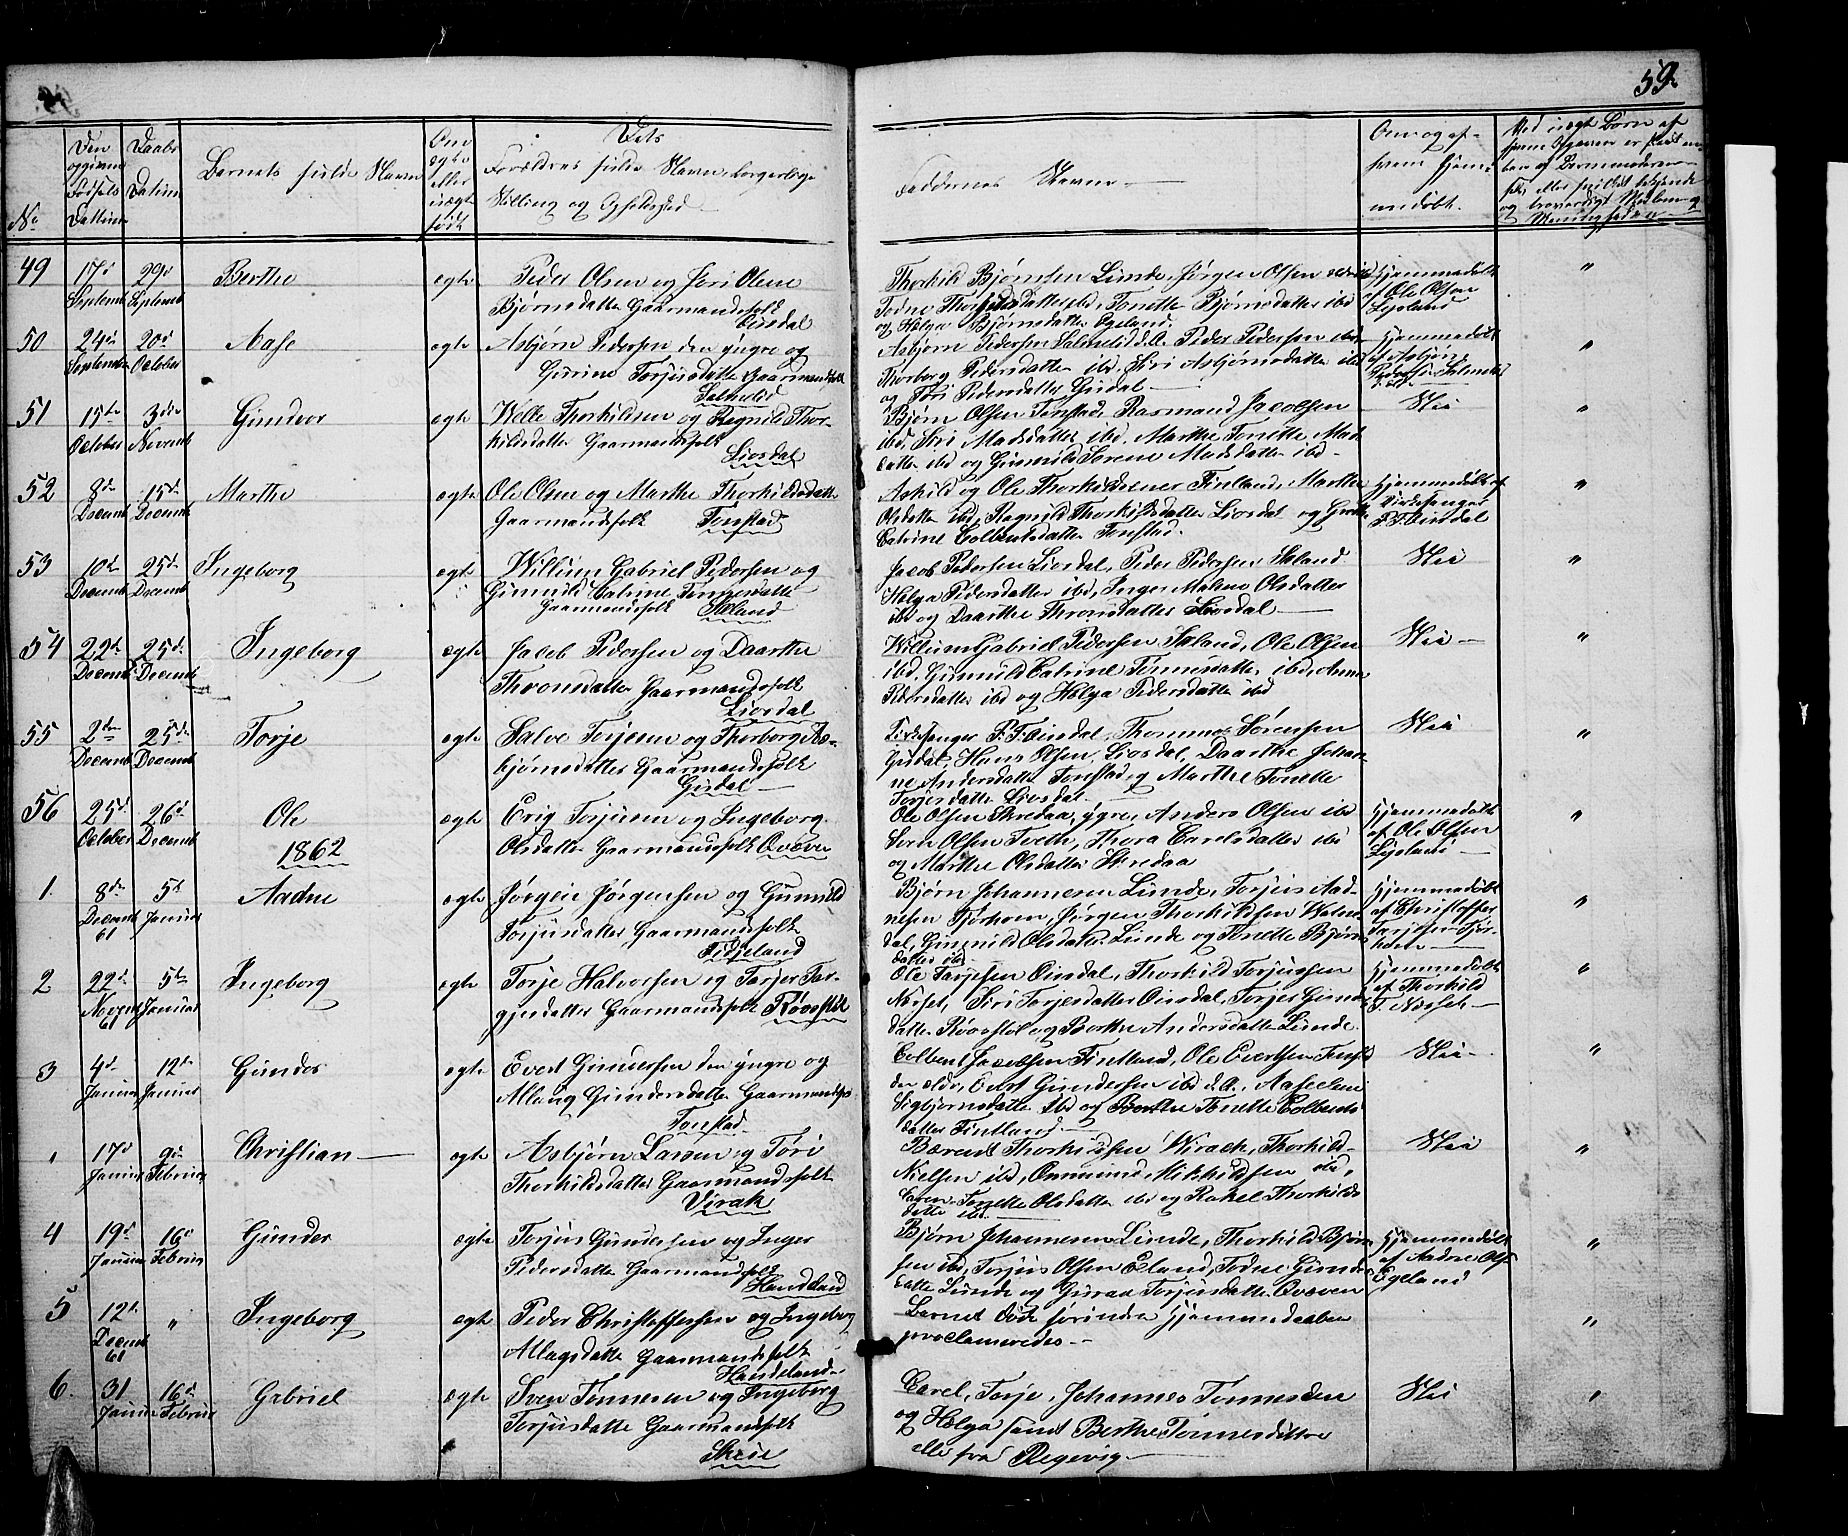 59
No
Den opgivne Fødsels Datum
Daabs Datum
Barnets fulde Navn
Om ægte eller uægte født
Dets Forældres fulde Navn, borgerlige Stilling og Opholdssted
Faddernes Navne
Om og af hvem hjemmedøbt.
49 17d Septemb 29d Septemb Berthe ægte Peder Olsen og Siri Olene
Bjørnsdatter Gaarmandsfolk
Oinsdal
Thorkild Bjørnsen Lunde, Jørgen Olsen
Todne Thorkildsdatter ibd, Tonette Bjørnsdatter ibd
og Helga Bjørnsdatter Egeland.
Hjemmedøbt
af Ole Olsen
Lyseland
50 24d September 20d October Aase ægte Asbjørn Pedersen den yngre og
Gurine Torjusdatter Gaarmandsfolk
Salmelid
Asbjørn Pedersen Salmelid d.æ. Peder Pedersen ibd
Thorborg Pedersdatter ibd, Siri Asbjørnsdatter ibd
og Tori Pedersdatter Gusdal
Hjemmedøbt
af Asbjørn
51 15de October 3die Novemb Gundvor ægte Velle Thorkildsen og Ragnild Thor-
kildsdatter Gaarmandsfolk
Liosdal
Bjørn Olsen Tonstad, Rasmund Jacobsen
ibd, Siri Madsdatter ibd, Marthe Tonette Mads
datter ibd og Gunnild Serene Madsdatter ibd
Nei
52 8de Decemb 15de Decemb Marthe ægte Ole Olsen og Marthe Thorkildsdatter
Gaarmandsfolk Tonstad
Askild og Ole Thorkildsener Finland, Marthe
Olsdatter ibd, Ragnild Thorkildsdatter Liosdal og
Catrine Colbentsdatter Tonstad.
Hjemmedøbt af
Kirkesanger
P. F. Oinsdal
53 10de Decemb 25de Decemb Ingeborg ægte Willum Gabriel Pedersen og
Gunnild Catrine Tønnesdatter
Gaarmandsfolk Haland
Jacob Pedersen Liosdal, Peder Pedersen Haland
Helga Pedersdatter ibd, Inger Malene Olsdatter
ibd og Daarthe Thronsdatter Liosdal
Nei
54 22de Decemb 25de Decemb Ingeborg ægte Jacob Pedersen og Daarthe
Thronsdatter Gaarmandsfolk
Liosdal
Willum Gabriel Pedersen Haland, Ole Olsen
ibd, Gunnild Catrine Tønnesdatter ibd, Anna
Pedersdatter ibd og Helga Pedersdatter ibd
Nei
55 2den Decemb 25de Decemb Torje ægte Salve Torjesen og Thorborg As-
bjørnsdatter Gaarmandsfolk
Gusdal
Kirkesanger P. F. Oinsdal, Thommas Sørensen
Gusdal, Hans Olsen Liosdal, Daarthe Johan-
ne Andersdatter Tonstad og Marthe Tonette
Torjesdatter Liosdal
Nei
56 25d October 26d Decemb Ole ægte Erig Torjusen og Ingeborg
Olsdatter Gaarmandsfolk Qvæve
Ole Olsen Skredaa, ygre, Anders Olsen ibd
Sørn Olsen Tveth, Thora Carelsdatter ibd
og Marthe Olsdatter Skredaa
Hjemmedøbt
af Ole Olsen
Lyseland
1862
1. 8de Decemb 61 5te Januar Aadne ægte Jørgen Jørgensen og Gunnild
Torjusdatter Gaarmandsfolk
Fidjeland
Bjørn Johannesen Lunde, Torjuis Aad-
nesen Tjørhom, Jørgen Thorkildsen
dal, Gunnild Olsdatter Lunde og Tonette Bjørns
datter ibd
Hjemmedøbt
af Christoffer
Tarjesen Tjør-
hom
2 22d Novemb 61 5te Januar Ingeborg ægte Torje Halvorsen og Tarjer Tar-
gjesdatter Gaarmandsfolk Røvstøl
Ole Tarjesen Oinsdal, Thorkild Torjussen
Nesset, Siri Torjesdatter Oinsdal, Torjer Gunder
datter Røvstøl og Berthe Andersdatter Lunde
Hjemmedøbt
af Thorkild
T. Nesset
3 4d Januar 12te Januar Gunder ægte Evert Gundersen den yngre og
Allaug Gundersdatter Gaarmandsfolk
Tonstad
Colbent Jacobsen Fintland, Ole Evertsen Tonstad
den ældre, Evert Gundersen ibd d.æ. Aaselene
Sigbjørnsdatter ibd og Berthe Tonette Colbents
datter Fintland
Nei
" 17d Januar 9de Februar Christian ægte Asbjørn Larsen og Tori
Thorkildsdatter Gaarmandsfolk
Virak
Bærent Thorkildsen Wirack, Thorkild
Nielsen ibd, Ommund Mikkildsen ibd,
Caren Tonette Olsdatter ibd og Rakel Thorkilds
datter ibd
Nei
4 19d Januar 16d Februar Gunder ægte Torjus Gundersen og Inger
Pedersdatter Gaarmandsfolk
Handeland
Bjørn Johannesen Lunde, Thorkild Bjørn
sen ibd, Torjus Olsen Eland, Todne Gunders
datter Lunde og Guraa Torjusdatter Qvæven
Hjemmedøbt
af Aadne Ols
Egeland
5 12te Decemb 61 " Ingeborg ægte Peder Christoffersen og Ingeborg
Allagsdatter Gaarmandsfolk
Handeland
Barnet døde forinden Hjemmedaaben
proclameredes
6. 31 Januar 16d Februar Gabriel ægte Sven Tønnesen og Ingeborg
Torjusdatter Gaarmandsfolk
Skeie
Carel, Torje, Johannes Tønnesener
og Helga samt Berthe Tønnesdøttre
alle fra Regevig
Nei